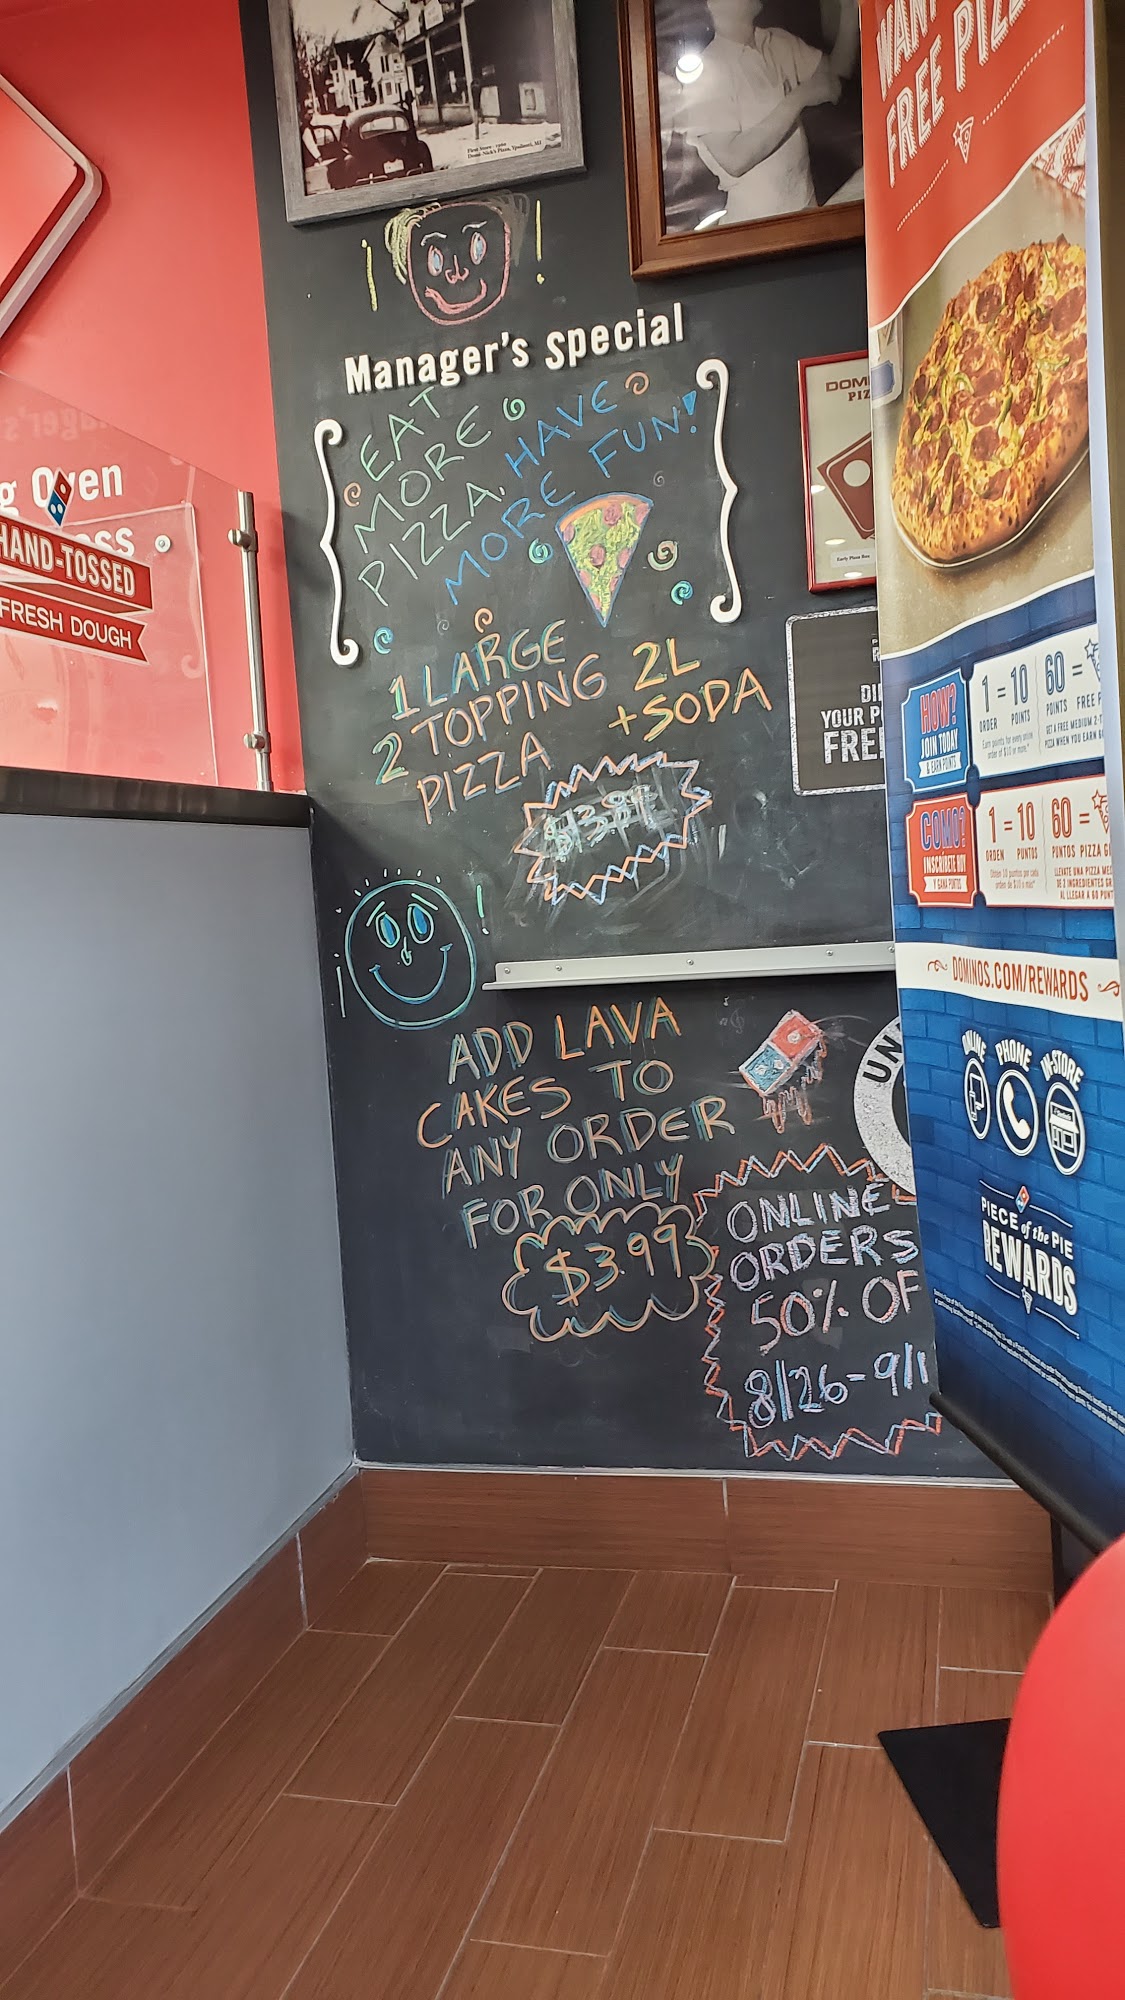 First Store - 1960
Domi-Nick's Pizza, Ypsilanti, MI
Manager's Special
EAT
MORE
PIZZA, HAVE
MORE FUN!
1 LARGE
2 TOPPING
PIZZA
2L
+SODA
ADD LAVA
CAKES TO
ANY ORDER
FOR ONLY
$3.99
ONLINE
ORDERS
50% OF
8/26-9/1
HAND-TOSSED
FRESH DOUGH
g Oven
Early Pizza Box
YOUR P
FREE
UN
FREE PIZ
HOW?
JOIN TODAY
& EARN POINTS
1 = 10
ORDER POINTS
Earn points for every online
order of $10 or more.*
60 =
POINTS FREE P
GET A FREE MEDIUM 2-T
PIZZA WHEN YOU EARN 6
COMO?
INSCRÍBETE HOY
Y GANA PUNTOS
1 = 10
ORDEN PUNTOS
Obtén 10 puntos por cada
orden de $10 o más*
60 =
PUNTOS PIZZA G
LLÉVATE UNA PIZZA ME
DE 2 INGREDIENTES GR
AL LLEGAR A 60 PUNT
DOMINOS.COM/REWARDS
ONLINE PHONE IN-STORE
PIECE of the PIE
REWARDS